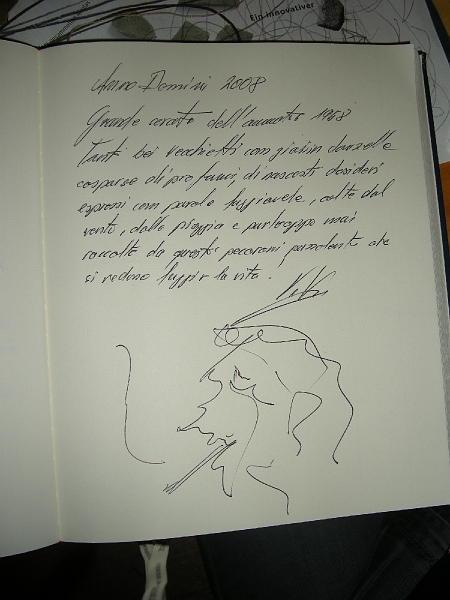 Ein innovativer
Anno Domini 2008
Grande cercato dell'ammanto 1968
Tanti bei vecchietti con giovin donzelle
cosparse di profumi, di nascosti desideri
espressi con parole fuggiavele, colte dal
vento, dalla pioggia e purtroppo mai
raccolte da questi pecoroni che
si vedono fuggir la vita.